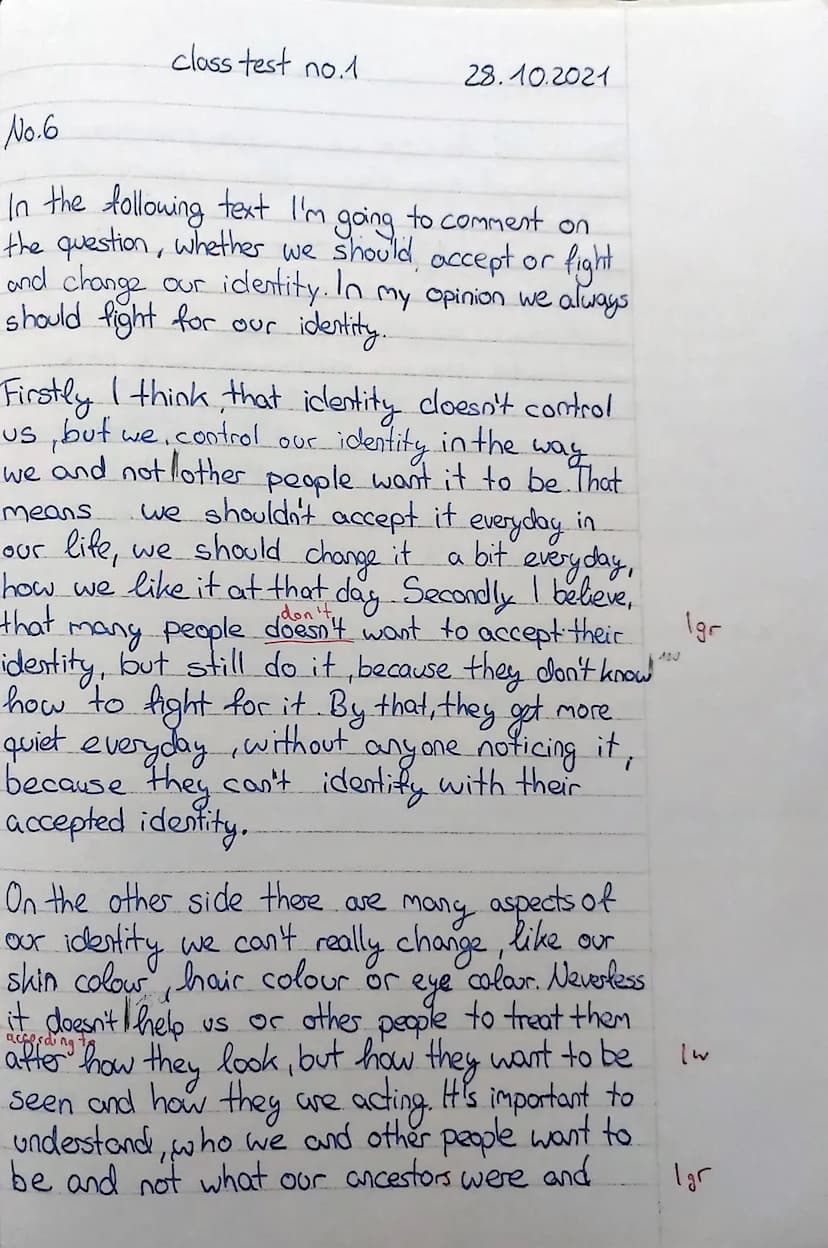 class test no.1 28.10.2021
No.6
In the following text I'm going to comment on
the question, whether we should accept or fight
and change our identity. In my opinion we always
should fight for our identity.
Firstly I think that identity doesn't control
us, but we control our identity in the way
we and not other people want it to be. That
means we shouldn't accept it everyday in
our life, we should change it a bit everyday,
how we like it at that day. Secondly I believe,
don't
that many people doesn't want to accept their 1gr
identity, but still do it, because they don't know
how to fight for it. By that, they get more
quiet everyday, without anyone noticing it,
because they can't identify with their
accepted identity.
On the other side there are many aspects of
our identity we can't really change, like our
skin colour, hair colour or eye colour. Neverless
it doesn't help us or other people to treat them
according to
after how they look, but how they want to be 1w
seen and how they are acting. It's important to
understand, who we and other people want to
be and not what our ancestors were and 1gr